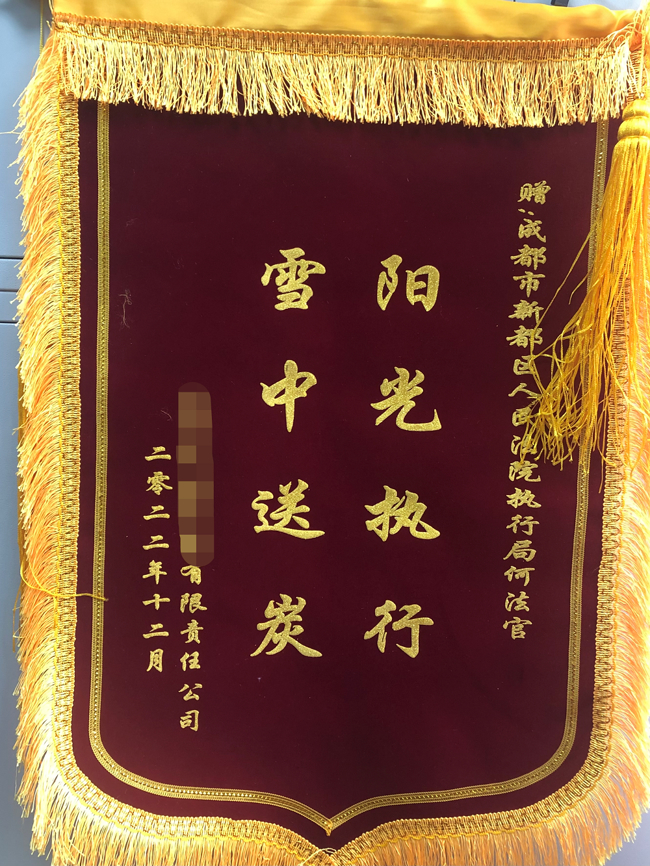 赠:成都市新都区人民法院执行局何法官
阳光执行
雪中送炭
有限责任公司
二零二二年十二月